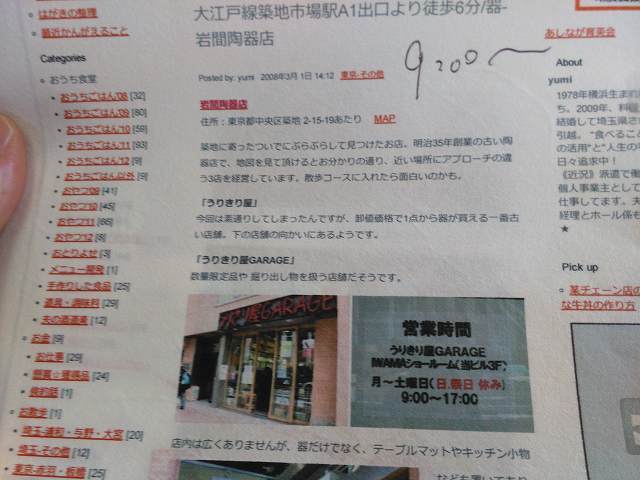 はがきの整理
最近かんがえること
Categories
おうち食堂
おうちごはん08 [32]
おうちごはん09 [80]
おうちごはん10 [59]
おうちごはん11 [93]
おうちごはん12 [9]
おうちごはん以外 [9]
おやつ09 [41]
おやつ10 [45]
おやつ11 [66]
おやつ12 [8]
おとりよせ [3]
メニュー開発 [1]
手作りした食品 [25]
道具・調味料 [29]
夫の酒道楽 [12]
お金 [9]
お仕事 [29]
懸賞☆獲得品 [24]
倹約話 [1]
お教室 [1]
埼玉-浦和・与野・大宮 [20]
埼玉-その他 [12]
東京-赤羽・板橋 [25]
大江戸線築地市場駅A1出口より徒歩6分/器-
岩間陶器店
9:00〜
Posted by: yumi 2008年3月1日 14:12 東京-その他
岩間陶器店
住所:東京都中央区築地 2-15-19あたり MAP
築地に寄ったついでにぶらぶらして見つけたお店。明治35年創業の古い陶
器店で、地図を見て頂けるとお分かりの通り、近い場所にアプローチの違
う3店を経営しています。散歩コースに入れたら面白いのかも。
「うりきり屋」
今回は素通りしてしまったんですが、卸値価格で1点から器が買える一番古
い店舗。下の店舗の向かいにあるようです。
「うりきり屋GARAGE」
数量限定品や 掘り出し物を扱う店舗だそうです。
うりきり屋GARAGE
営業時間
うりきり屋GARAGE
IWAMAショールーム(当ビル3F)
月〜土曜日(日.祭日 休み)
9:00〜17:00
店内は広くありませんが、器だけでなく、テーブルマットやキッチン小物
なども置いてあり
あしなが育英会
About
yumi
1978年横浜生まれ
ち。2009年、料
結婚して埼玉県さ
引越。"食べるこ
の活用"と"人生の
日々追求中！
《近況》派遣で働
個人事業主として
仕事してます。夫
経理とホール係も
★
Pick up
某チェーン店の
な牛丼の作り方